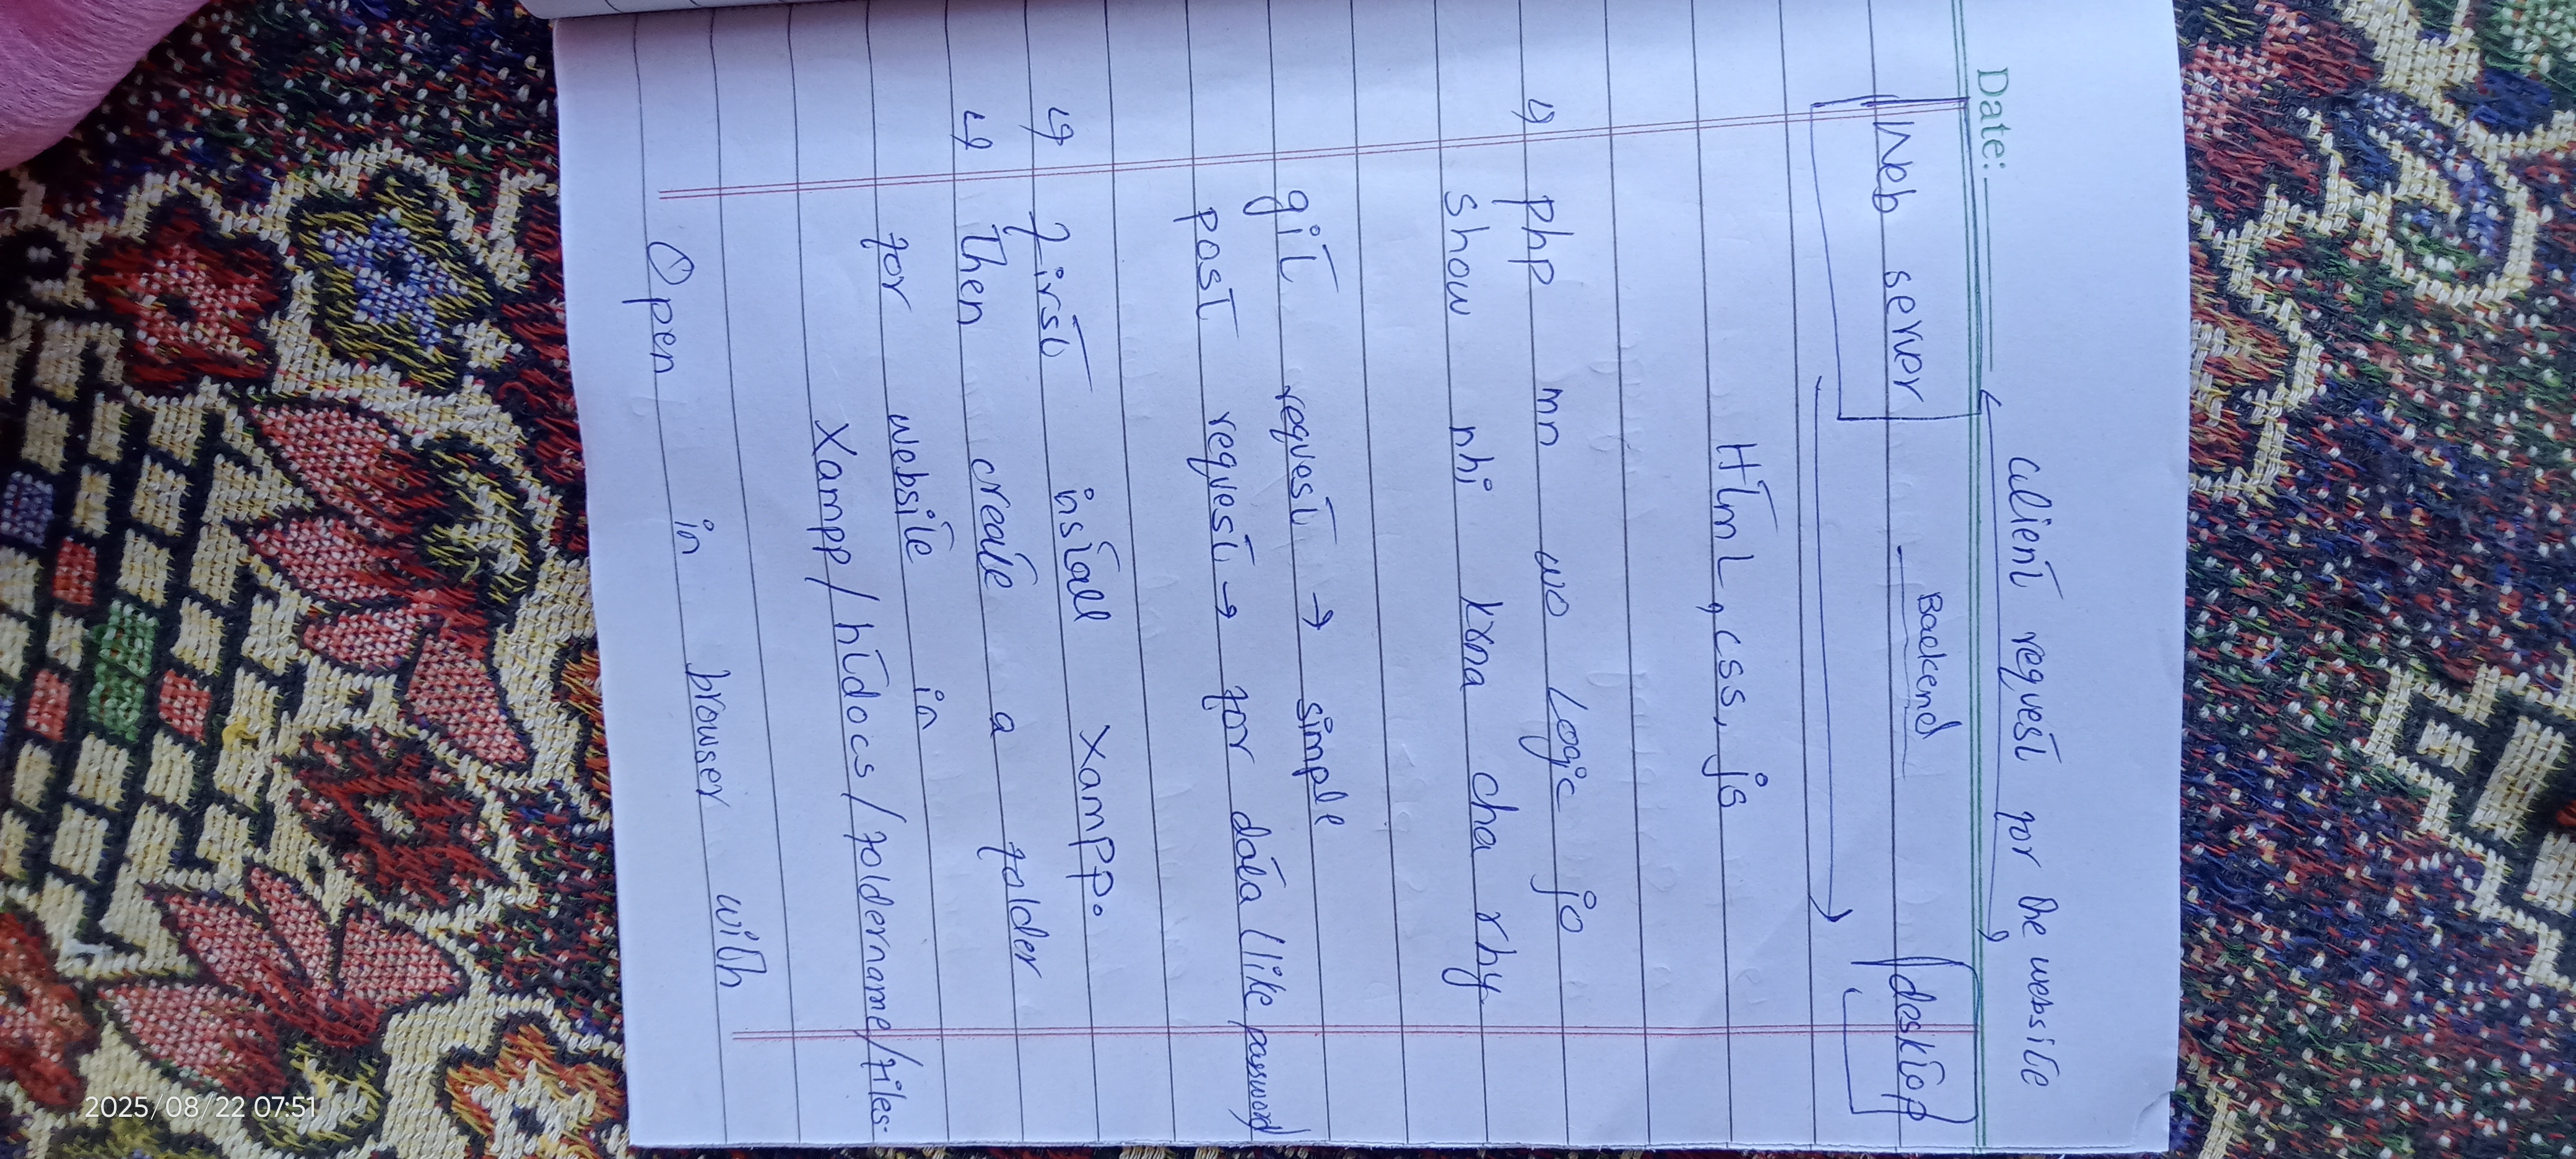 Client request for the website
Date:
Web server
Backend
desktop
Html, css, js
php mn wo logic jo
show nhi krna cha rhy
git request → simple
post request → for data (like password
First install XAMPP.
Then create a folder
for website in
Xampp/htdocs/foldername/files.
Open in browser with
2025/08/22 07:51